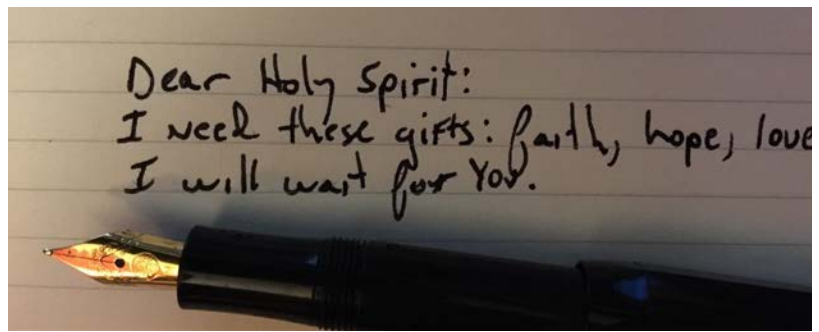 Dear Holy Spirit:
I need these gifts: faith, hope, love
I will wait for You.